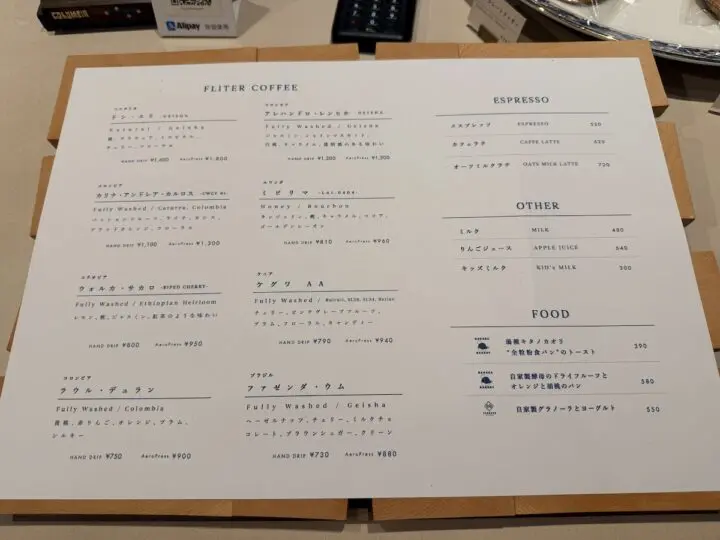 Alipay
FLITER COFFEE
ドン・エミ -GEISHA
Natural / Geisha
HAND DRIP ¥1,600 AeroPress ¥1,800
コロンビア
アレハンドロ・レンヒホ -GEISHA
Fully Washed / Geisha
HAND DRIP ¥1,200 AeroPress ¥1,300
コロンビア
カリナ・アンドレア・カルロス
Fully Washed / Caturra, Colombia
パッションフルーツ、ライチ、
ブラッドオレンジ、フローラル
HAND DRIP ¥1,100 AeroPress ¥1,300
ルワンダ
ミビリマ
Honey / Bourbon
ゴールデンレーズン
HAND DRIP ¥810 AeroPress ¥960
エチオピア
ウォルカ・サカロ -RIPED CHERRY-
Fully Washed / Ethiopian Heirloom
レモン、桃、ジャスミン、紅茶のような味わい
HAND DRIP ¥800 AeroPress ¥950
ケニア
ケグワ AA
Fully Washed / Ruiru11, SL28, SL34, Batian
チェリー、ピンクグレープフルーツ、
プラム、フローラル、キャンディー
HAND DRIP ¥790 AeroPress ¥940
コロンビア
ラウル・デュラン
Fully Washed / Colombia
黄桃、赤りんご、オレンジ、プラム、
シルキー
HAND DRIP ¥750 AeroPress ¥900
ブラジル
ファゼンダ・ウム
Fully Washed / Geisha
ヘーゼルナッツ、チェリー、ミルクチョ
コレート、ブラウンシュガー、クリーン
HAND DRIP ¥730 AeroPress ¥880
ESPRESSO
エスプレッソ ESPRESSO 520
カフェラテ CAFFE LATTE 620
オーツミルクラテ OATS MILK LATTE 720
OTHER
ミルク MILK 400
りんごジュース APPLE JUICE 640
キッズミルク KID's MILK 300
FOOD
湯種キタノカオリ
"全粒粉食パン"のトースト 290
自家製酵母のドライフルーツと
オレンジと胡桃のパン 380
自家製グラノーラとヨーグルト 550